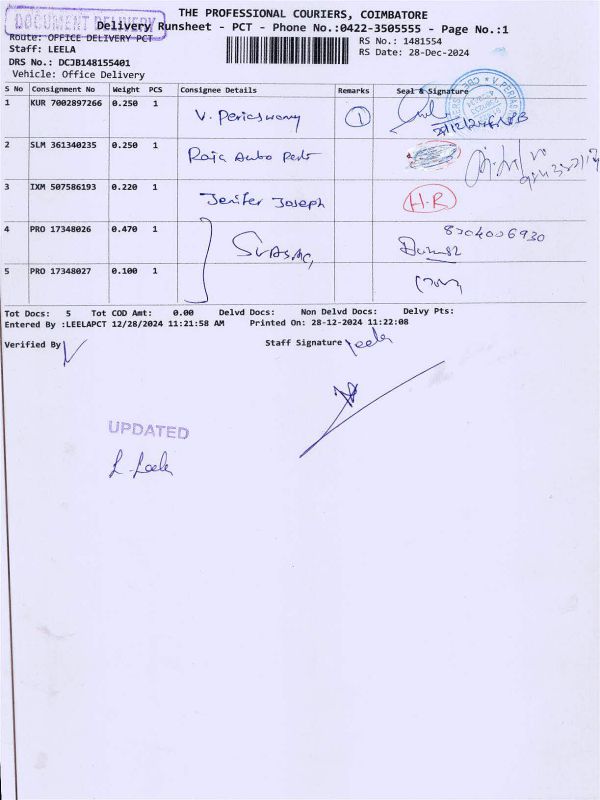 DOCUMENT DELIVERY
THE PROFESSIONAL COURIERS, COIMBATORE
Delivery Runsheet - PCT - Phone No.:0422-3505555 - Page No.:1
Route: OFFICE DELIVERY PCT
RS No.: 1481554
Staff: LEELA
RS Date: 28-Dec-2024
DRS No.: DCJB148155401
Vehicle: Office Delivery
S No Consignment No Weight PCS Consignee Details Remarks Seal & Signature
1 KUR 7002897266 0.250 1 V. Periaswamy 1
2 SLM 361340235 0.250 1 Raja Auto
3 IXM 507586193 0.220 1 Jenifer Joseph H.R
4 PRO 17348026 0.470 1
5 PRO 17348027 0.100 1
Tot Docs: 5 Tot COD Amt: 0.00 Delvd Docs: Non Delvd Docs: Delvy Pts:
Entered By :LEELAPCT 12/28/2024 11:21:58 AM Printed On: 28-12-2024 11:22:08
Verified By Staff Signature Leela
UPDATED
L. Leela